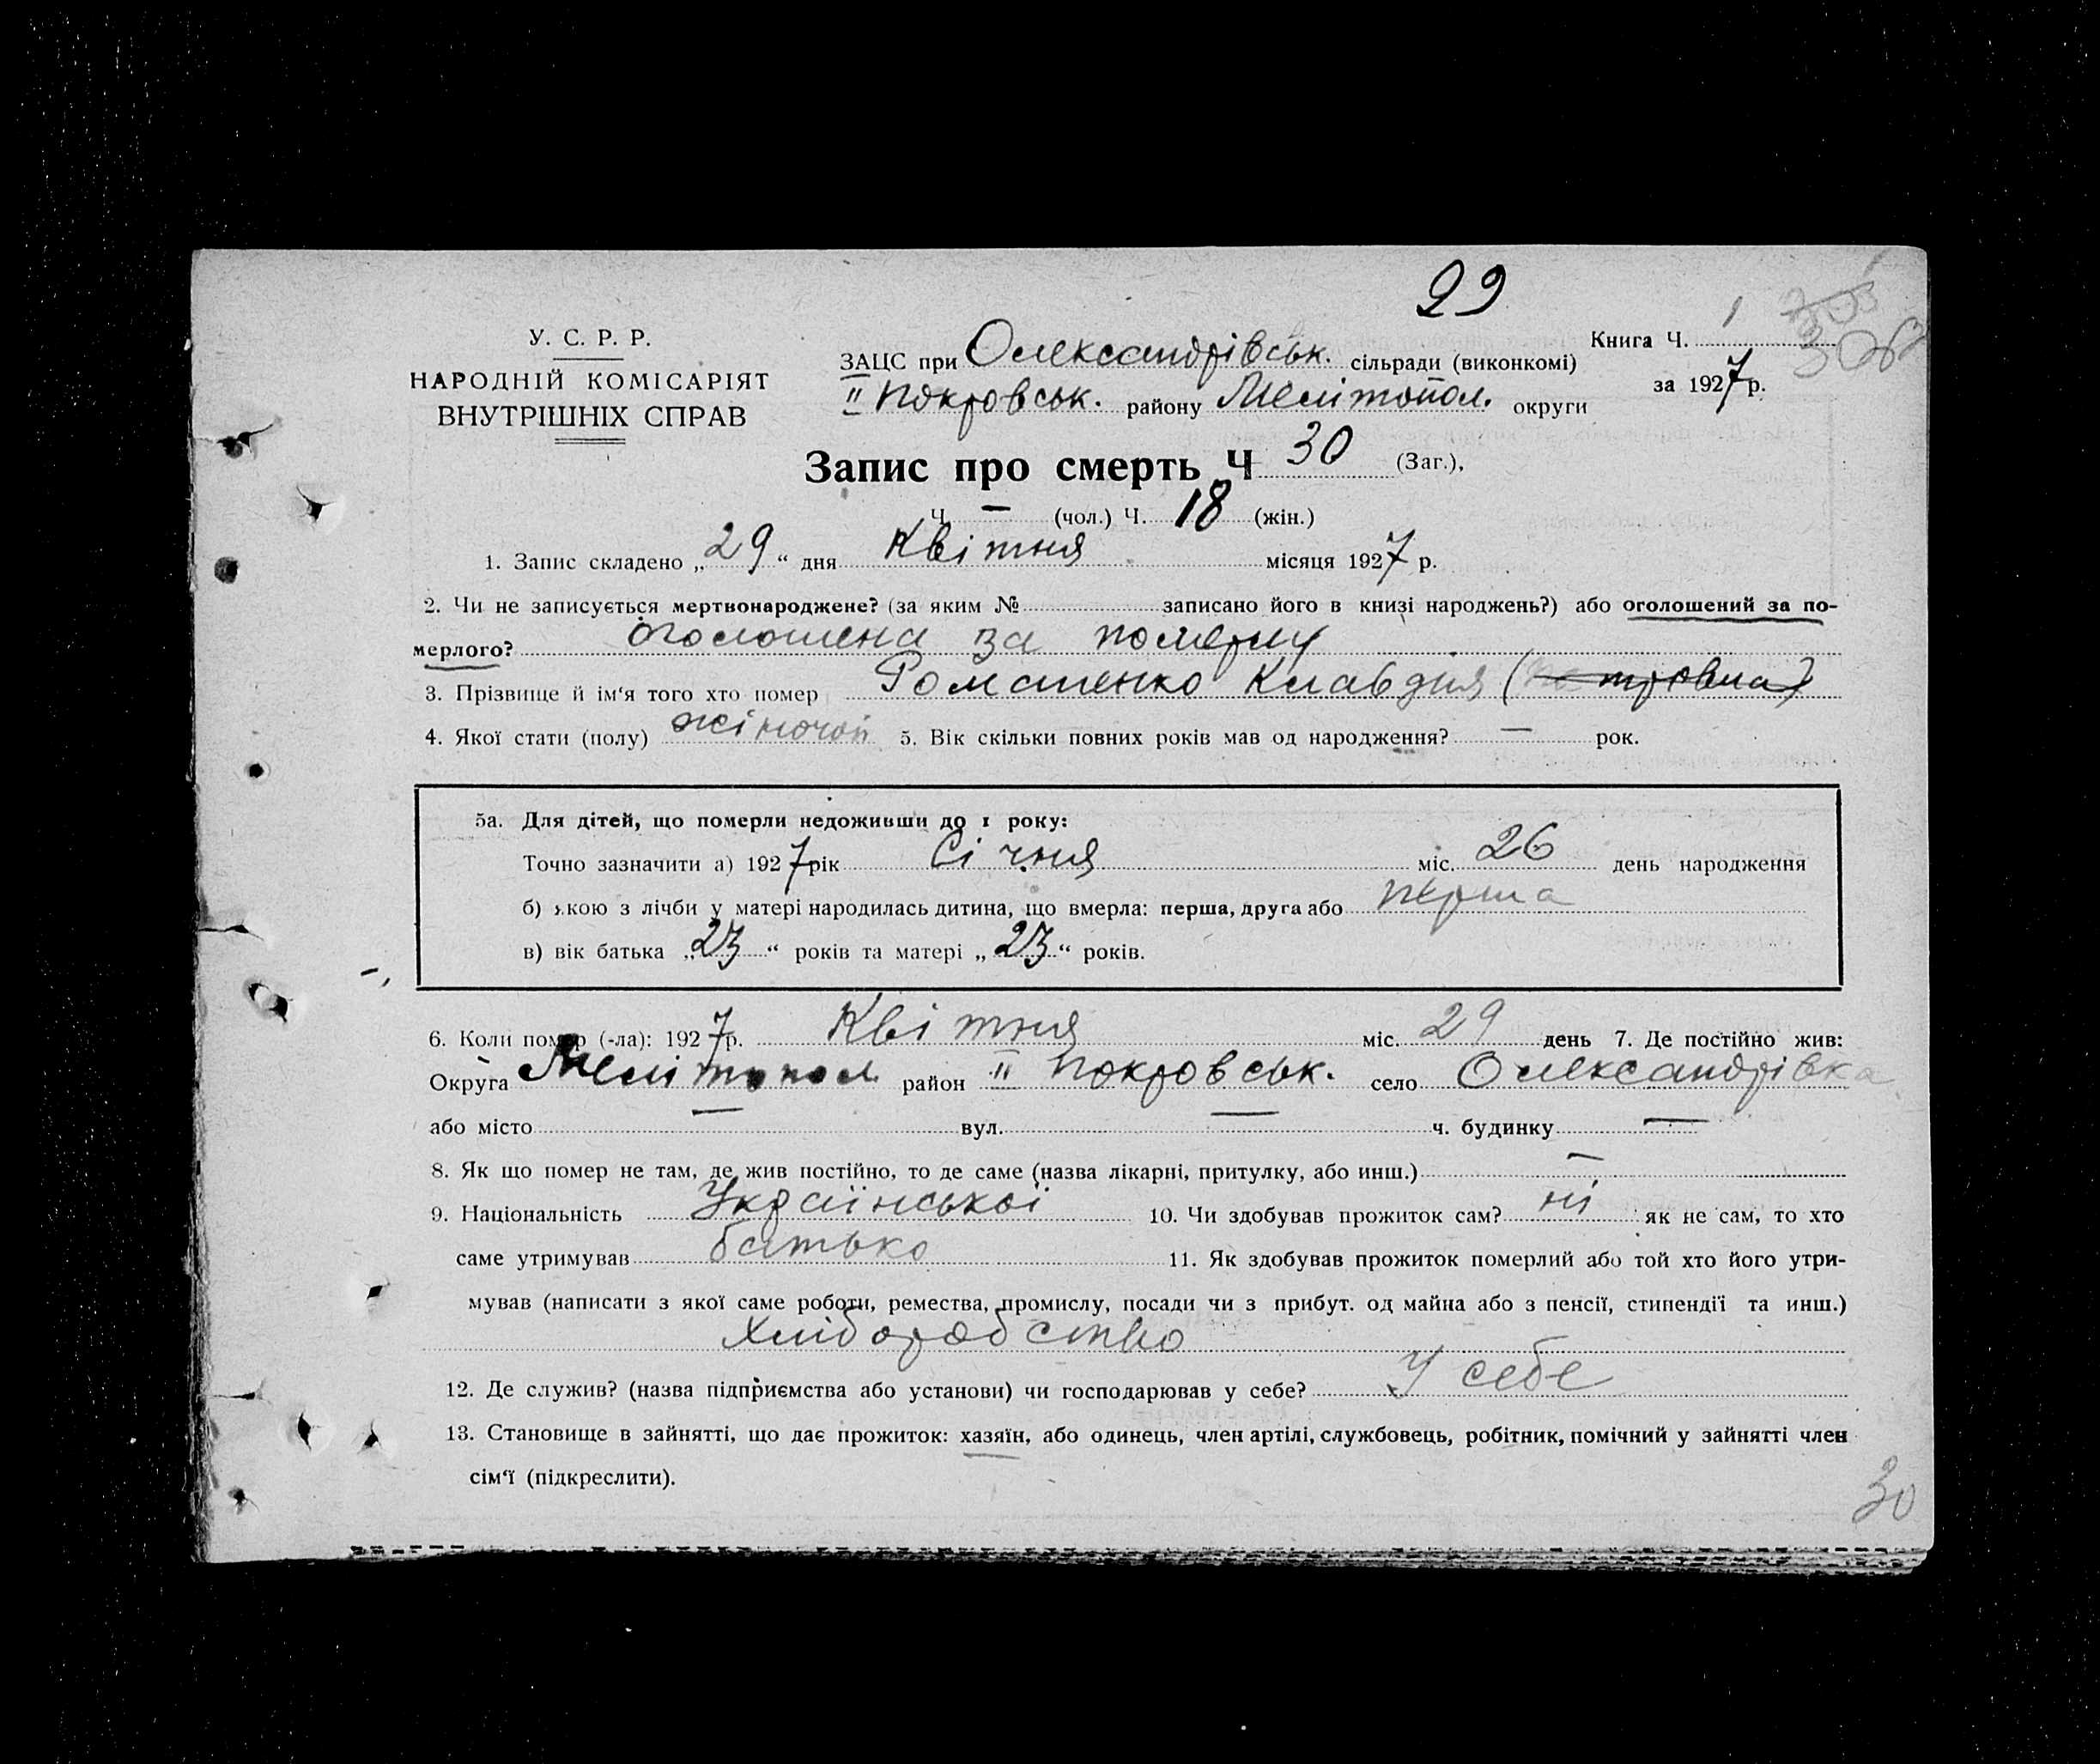 29
У. С. Р. Р.
НАРОДНІЙ КОМІСАРІЯТ
ВНУТРІШНІХ СПРАВ
ЗАЦС при Олександрівськ. сільради (виконкомі)
II Покровськ. району Мелітопол. округи
Книга Ч. 1
306
за 1927 р.
Запис про смерть Ч 30 (Заг.),
Ч. — (чол.) Ч. 18 (жін.)
1. Запис складено „29“ дня Квітня місяця 1927 р.
2. Чи не записується мертвонароджене? (за яким № записано його в книзі народжень?) або оголошений за по-
мерлого? оголошена за померлу
3. Прізвище й ім‘я того хто помер Романенко Клавдія (Петровна)
4. Якої стати (полу) жіночої 5. Вік скільки повних років мав од народження? — рок.
5а. Для дітей, що померли недоживши до 1 року:
Точно зазначити а) 1927 рік Січня міс. 26 день народження
б) якою з лічби у матері народилась дитина, що вмерла: перша, друга або перша
в) вік батька „23“ років та матері „23“ років.
6. Коли помер (-ла): 1927 р. Квітня міс. 29 день 7. Де постійно жив:
Округа Мелітопол район II Покровськ. село Олександрівка
або місто — вул. — ч. будинку —
8. Як що помер не там, де жив постійно, то де саме (назва лікарні, притулку, або инш.) —
9. Національність Української 10. Чи здобував прожиток сам? ні як не сам, то хто
саме утримував батько 11. Як здобував прожиток померлий або той хто його утри-
мував (написати з якої саме роботи, ремества, промислу, посади чи з прибут. од майна або з пенсії, стипендії та инш.)
Хліборобство
12. Де служив? (назва підприємства або установи) чи господарював у себе? У себе
13. Становище в зайнятті, що дає прожиток: хазяїн, або одинець, член артілі, службовець, робітник, помічний у зайнятті член
сім‘ї (підкреслити).
30